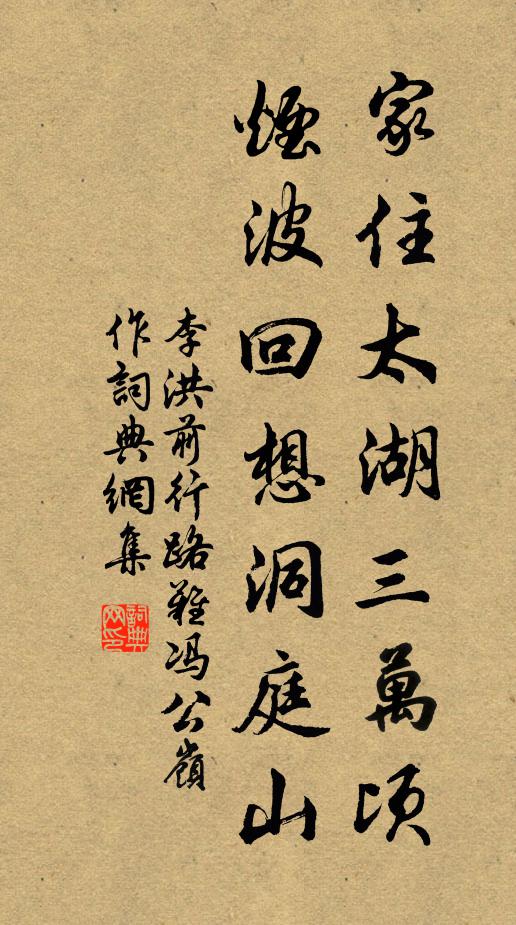 家住太湖三萬頃
煙波回想洞庭山
李洪前行路難馮公嶺
作詞典網集
詞典
网印